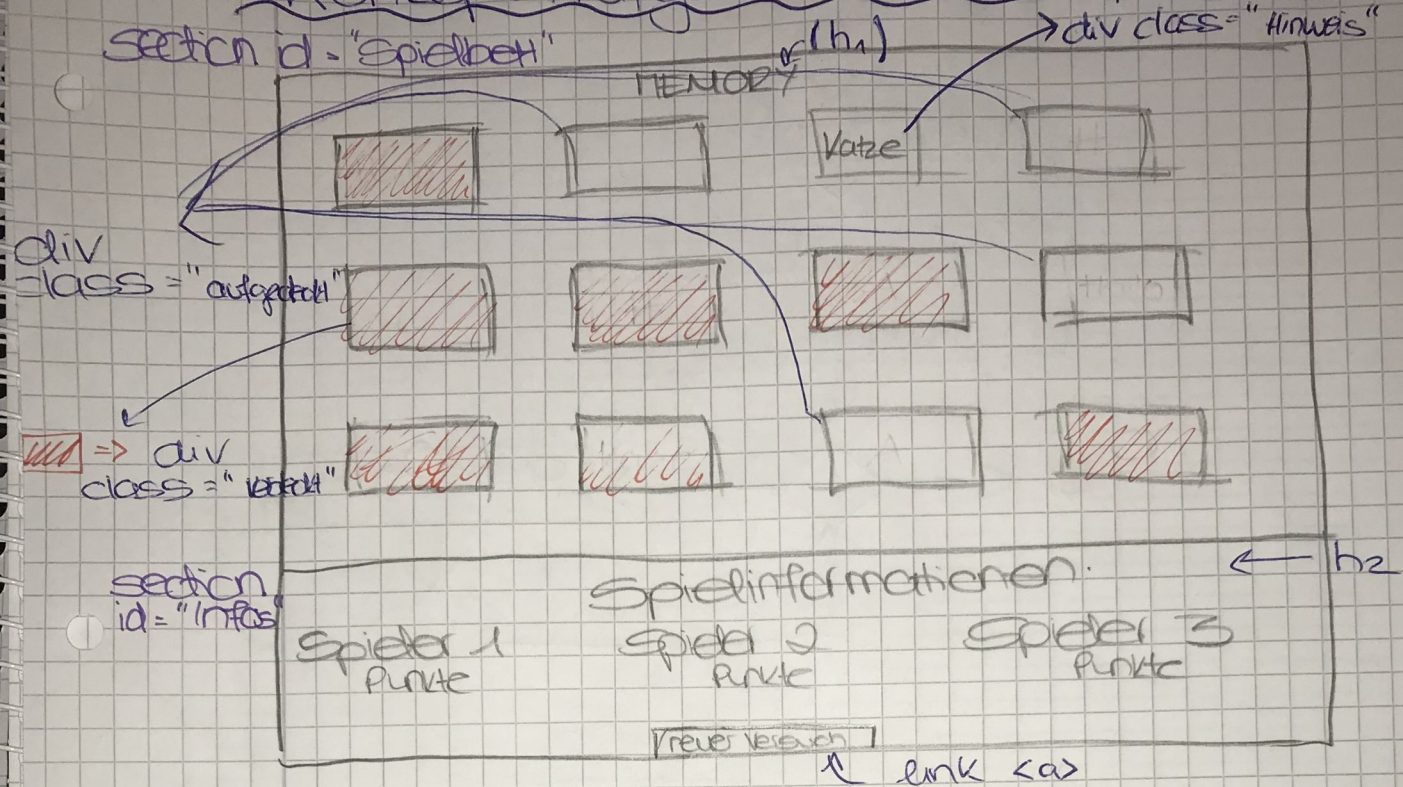 section id = "Spielbett"
(h1)
div class="Hinweis"
MEMORY
Katze
div
class = "aufgedeckt"
=> div
class = "verdeckt"
section
id = "Infos
Spielinformationen.
h2
Spieler 1
Spieler 2
Spieler 3
Punkte
Punkte
Punkte
neuer Versuch
link <a>